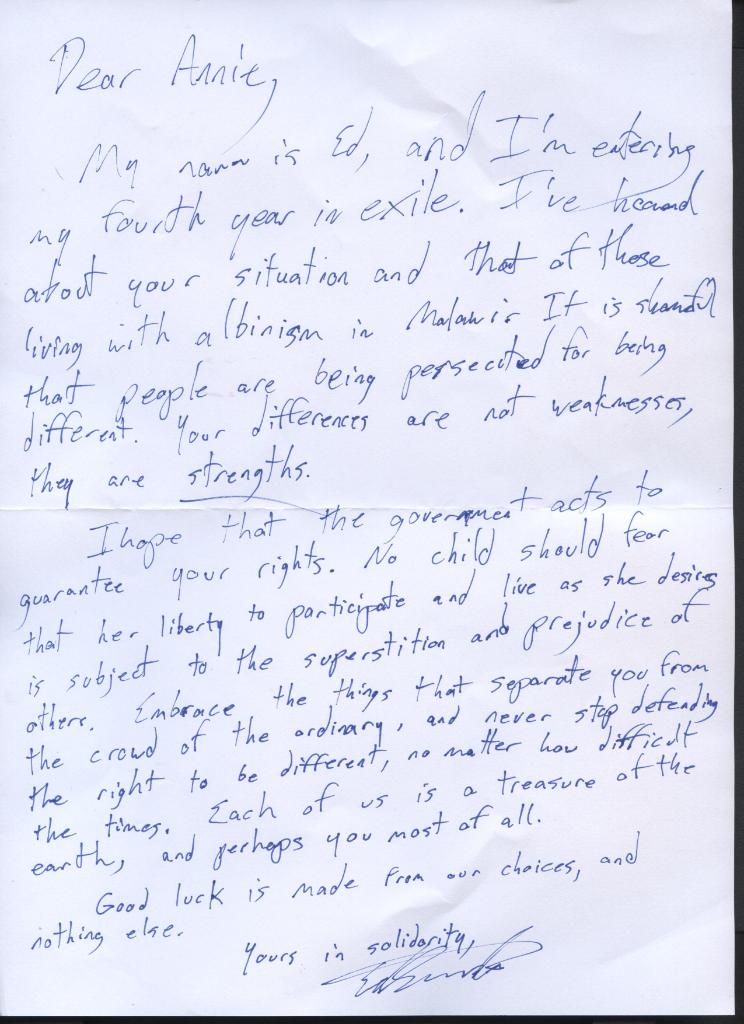 Dear Annie,
My name is Ed, and I'm entering
my fourth year in exile. I've heard
about your situation and that of those
living with albinism in Malawi. It is shameful
that people are being persecuted for being
different. Your differences are not weaknesses,
they are strengths.
I hope that the government acts to
guarantee your rights. No child should fear
that her liberty to participate and live as she desires
is subject to the superstition and prejudice of
others. Embrace the things that separate you from
the crowd of the ordinary, and never stop defending
the right to be different, no matter how difficult
the times. Each of us is a treasure of the
earth, and perhaps you most of all.
Good luck is made from our choices, and
nothing else.
Yours in solidarity,